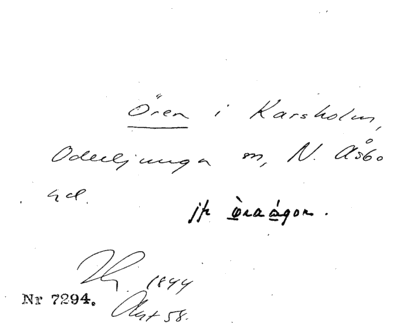 Ören i Karsholm,
Oderljunga sn, N. Åsbo
hd.
jfr öraågon.
1844
Nr 7294. Akt 58.